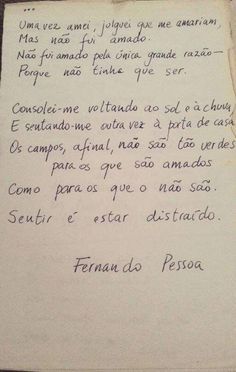 ...
Uma vez amei, julguei que me amariam,
Mas não fui amado.
Não fui amado pela única grande razão—
Porque não tinha que ser.
Consolei-me voltando ao sol e à chuva,
E sentando-me outra vez à porta de casa
Os campos, afinal, não são tão verdes
para os que são amados
Como para os que o não são.
Sentir é estar distraído.
Fernando Pessoa